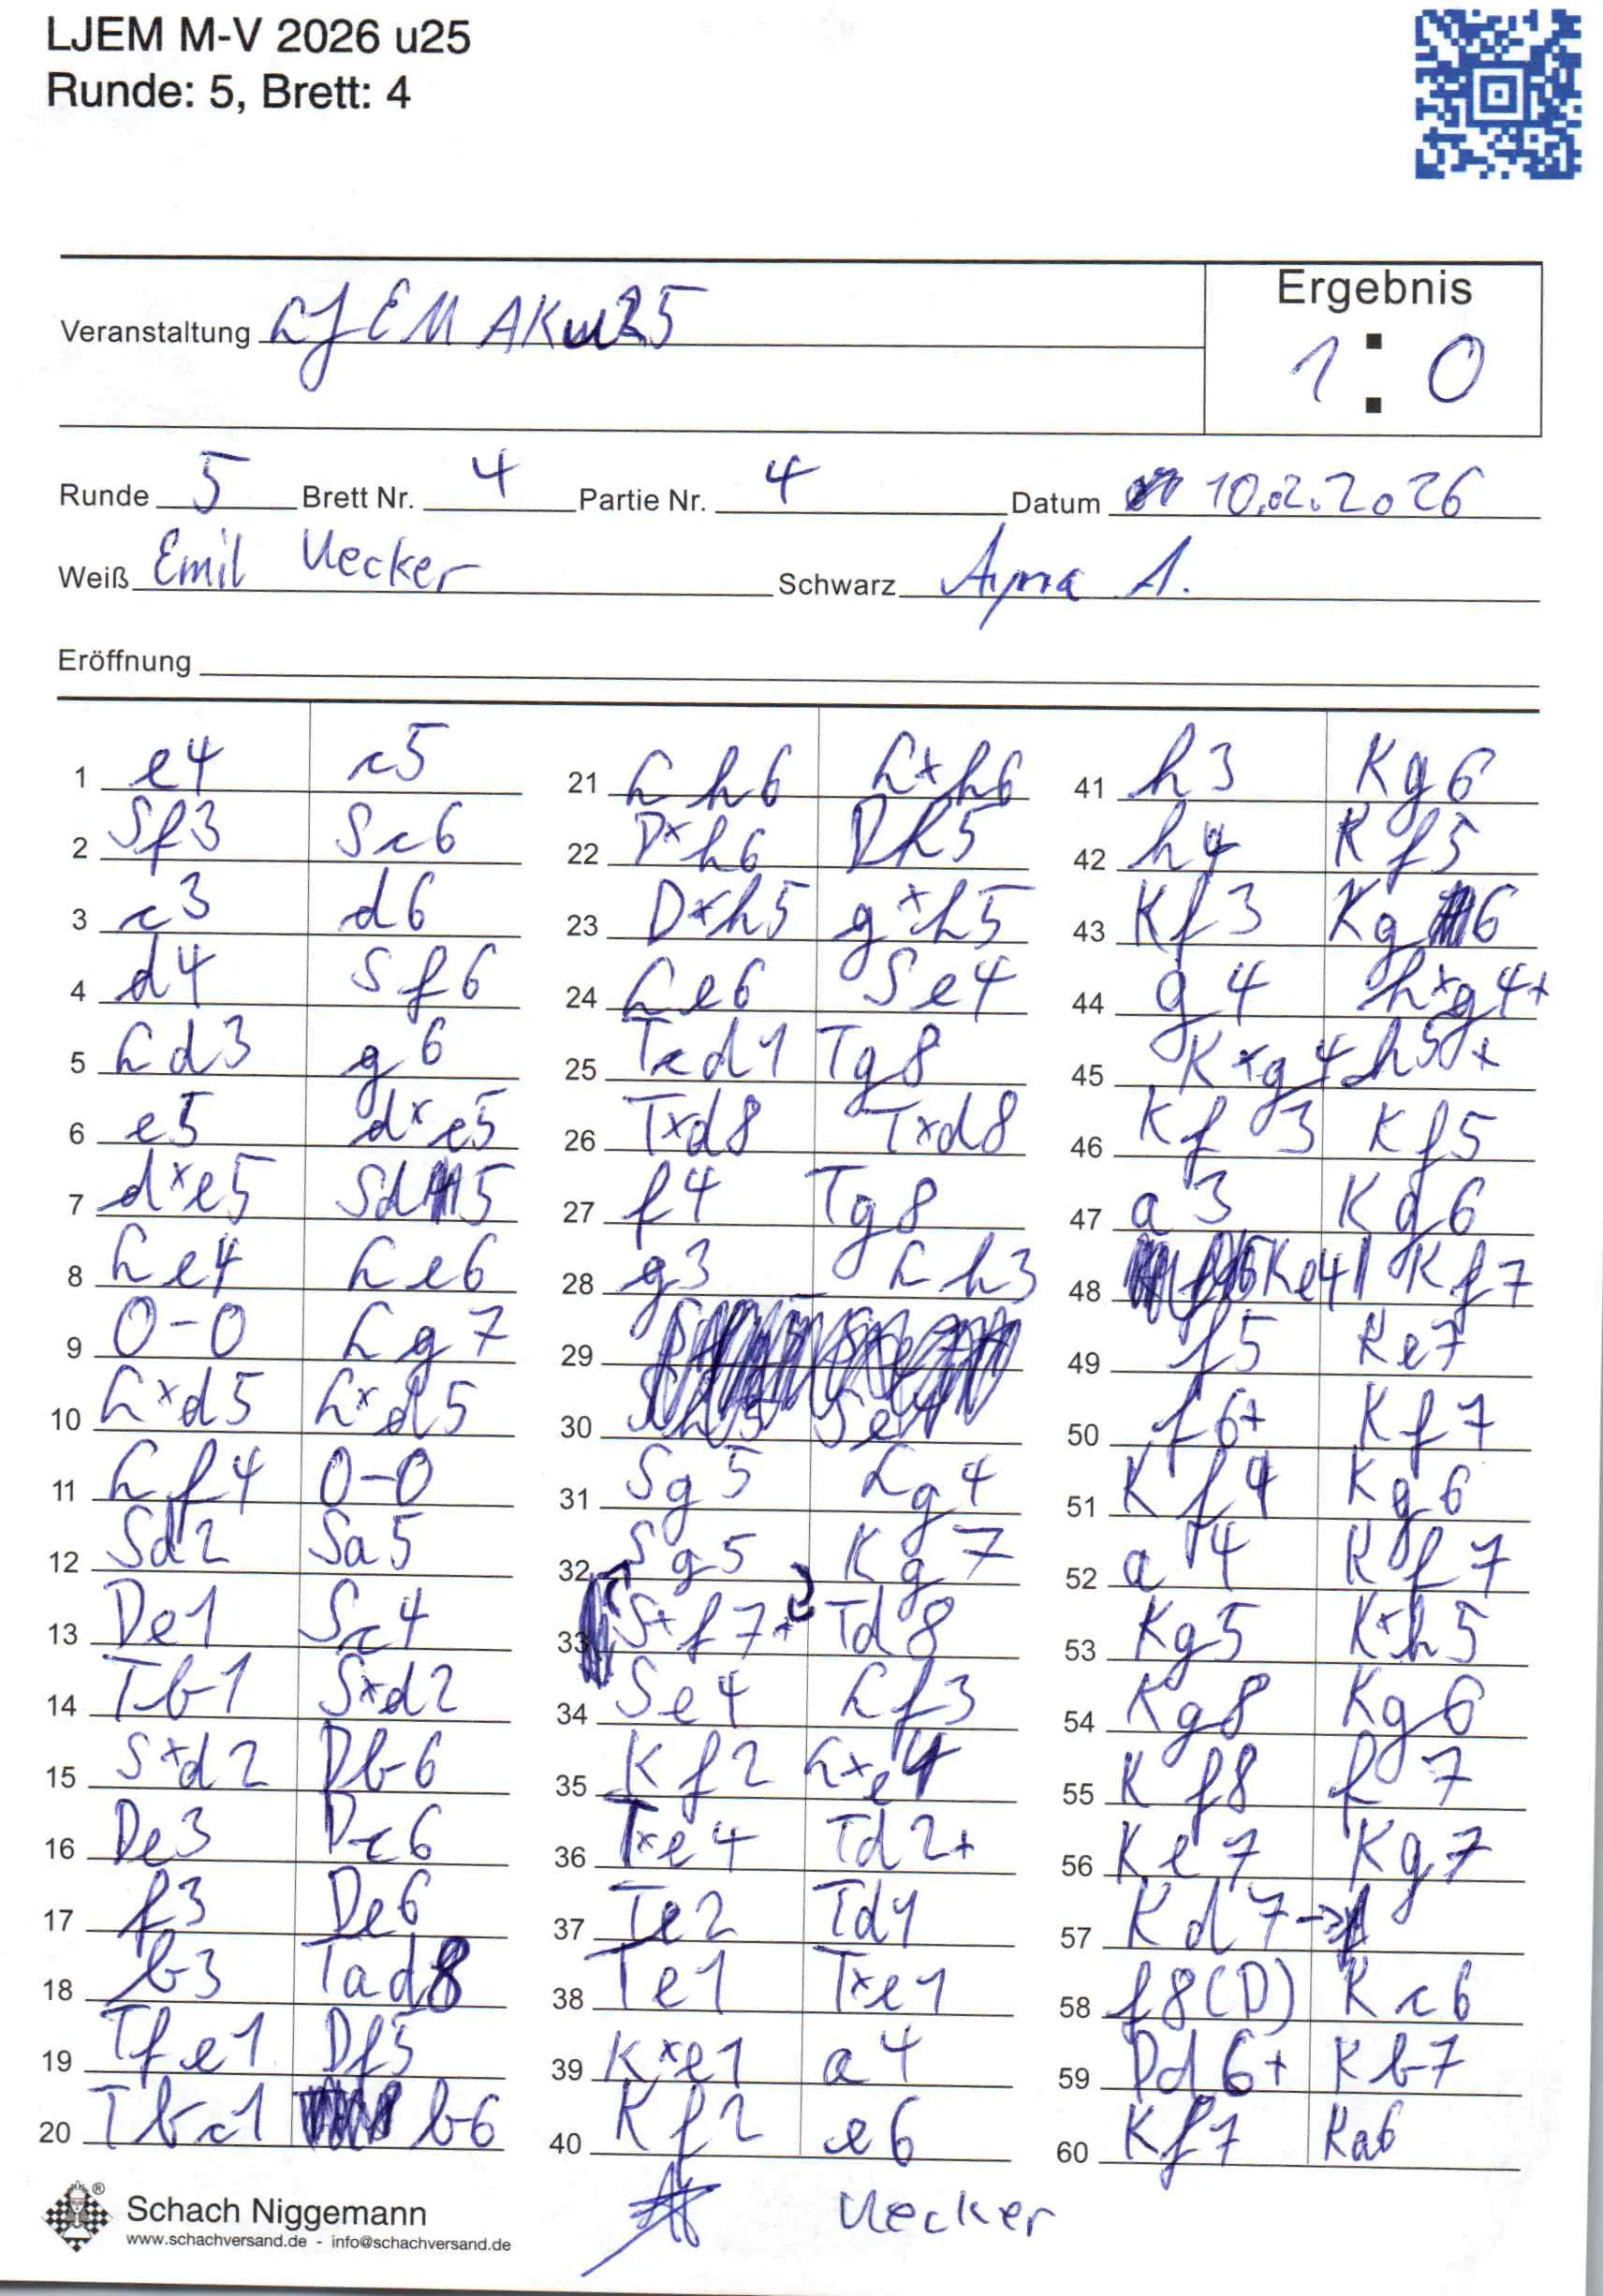 LJEM M-V 2026 u25
Runde: 5, Brett: 4
Veranstaltung LJEM AKu25
Ergebnis
1 : 0
Runde 5 Brett Nr. 4 Partie Nr. 4 Datum 10.2.2026
Weiß Emil Uecker Schwarz A.
Eröffnung
1 e4 c5
2 Sf3 Sc6
3 c3 d6
4 d4 Sf6
5 Ld3 g6
6 e5 dxe5
7 dxe5 Sd5
8 Le4 Le6
9 0-0 Lg7
10 Lxd5 Lxd5
11 Lf4 0-0
12 Sd2 Sa5
13 De1 Sc4
14 Tb1 Sxd2
15 Sxd2 Db6
16 De3 Dc6
17 f3 De6
18 b3 Tad8
19 Tfe1 Df5
20 Tbc1 b6
21 Lh6 Lxh6
22 Dxh6 Dh5
23 Dxh5 gxh5
24 Le6 Se4
25 Tcd1 Tg8
26 Txd8 Txd8
27 f4 Tg8
28 g3 Lh3
29
30
31 Sg5 Lg4
32 Sg5 Kg7
33 Sxf7+ Td8
34 Se4 Lf3
35 Kf2 Lxe4
36 Txe4 Td2+
37 Te2 Td1
38 Te1 Txe1
39 Kxe1 a4
40 Kf2 e6
41 h3 Kg6
42 h4 Kf5
43 Kf3 Kg6
44 g4 hxg4+
45 Kxg4 h5+
46 Kf3 Kf5
47 a3 Kg6
48 Ke4 Kf7
49 f5 Ke7
50 f6+ Kf7
51 Kf4 Kg6
52 a4 Kf7
53 Kg5 Kxh5
54 Kg8 Kg6
55 Kf8 f7
56 Ke7 Kg7
57 Kd7→
58 f8(D) Kc6
59 Dd6+ Kb7
60 Kf7 Ka6
Uecker
Schach Niggemann
www.schachversand.de - info@schachversand.de